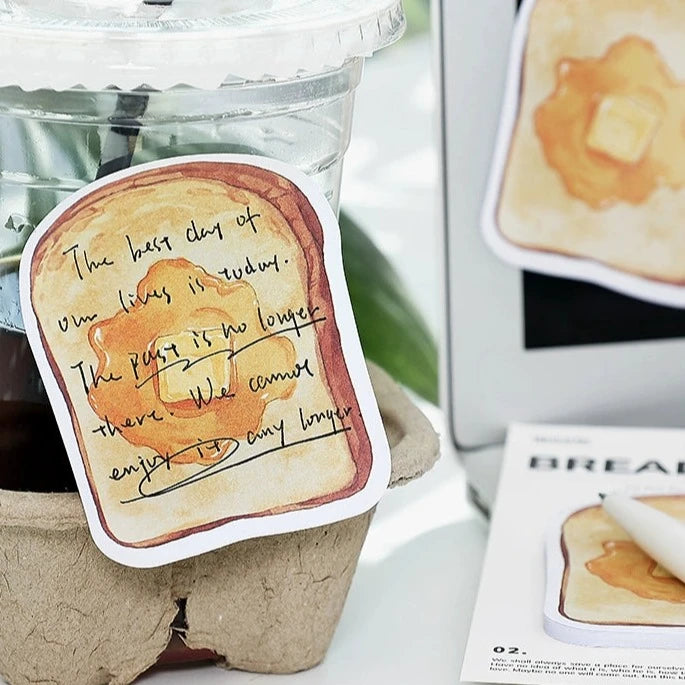 The best day of
our lives is today.
The past is no longer
there. We cannot
enjoy it any longer.
BREA
02.
We shall always save a place for ourselve
I have no idea of what it is, who he is, how
love. Maybe no one will come out, but this k